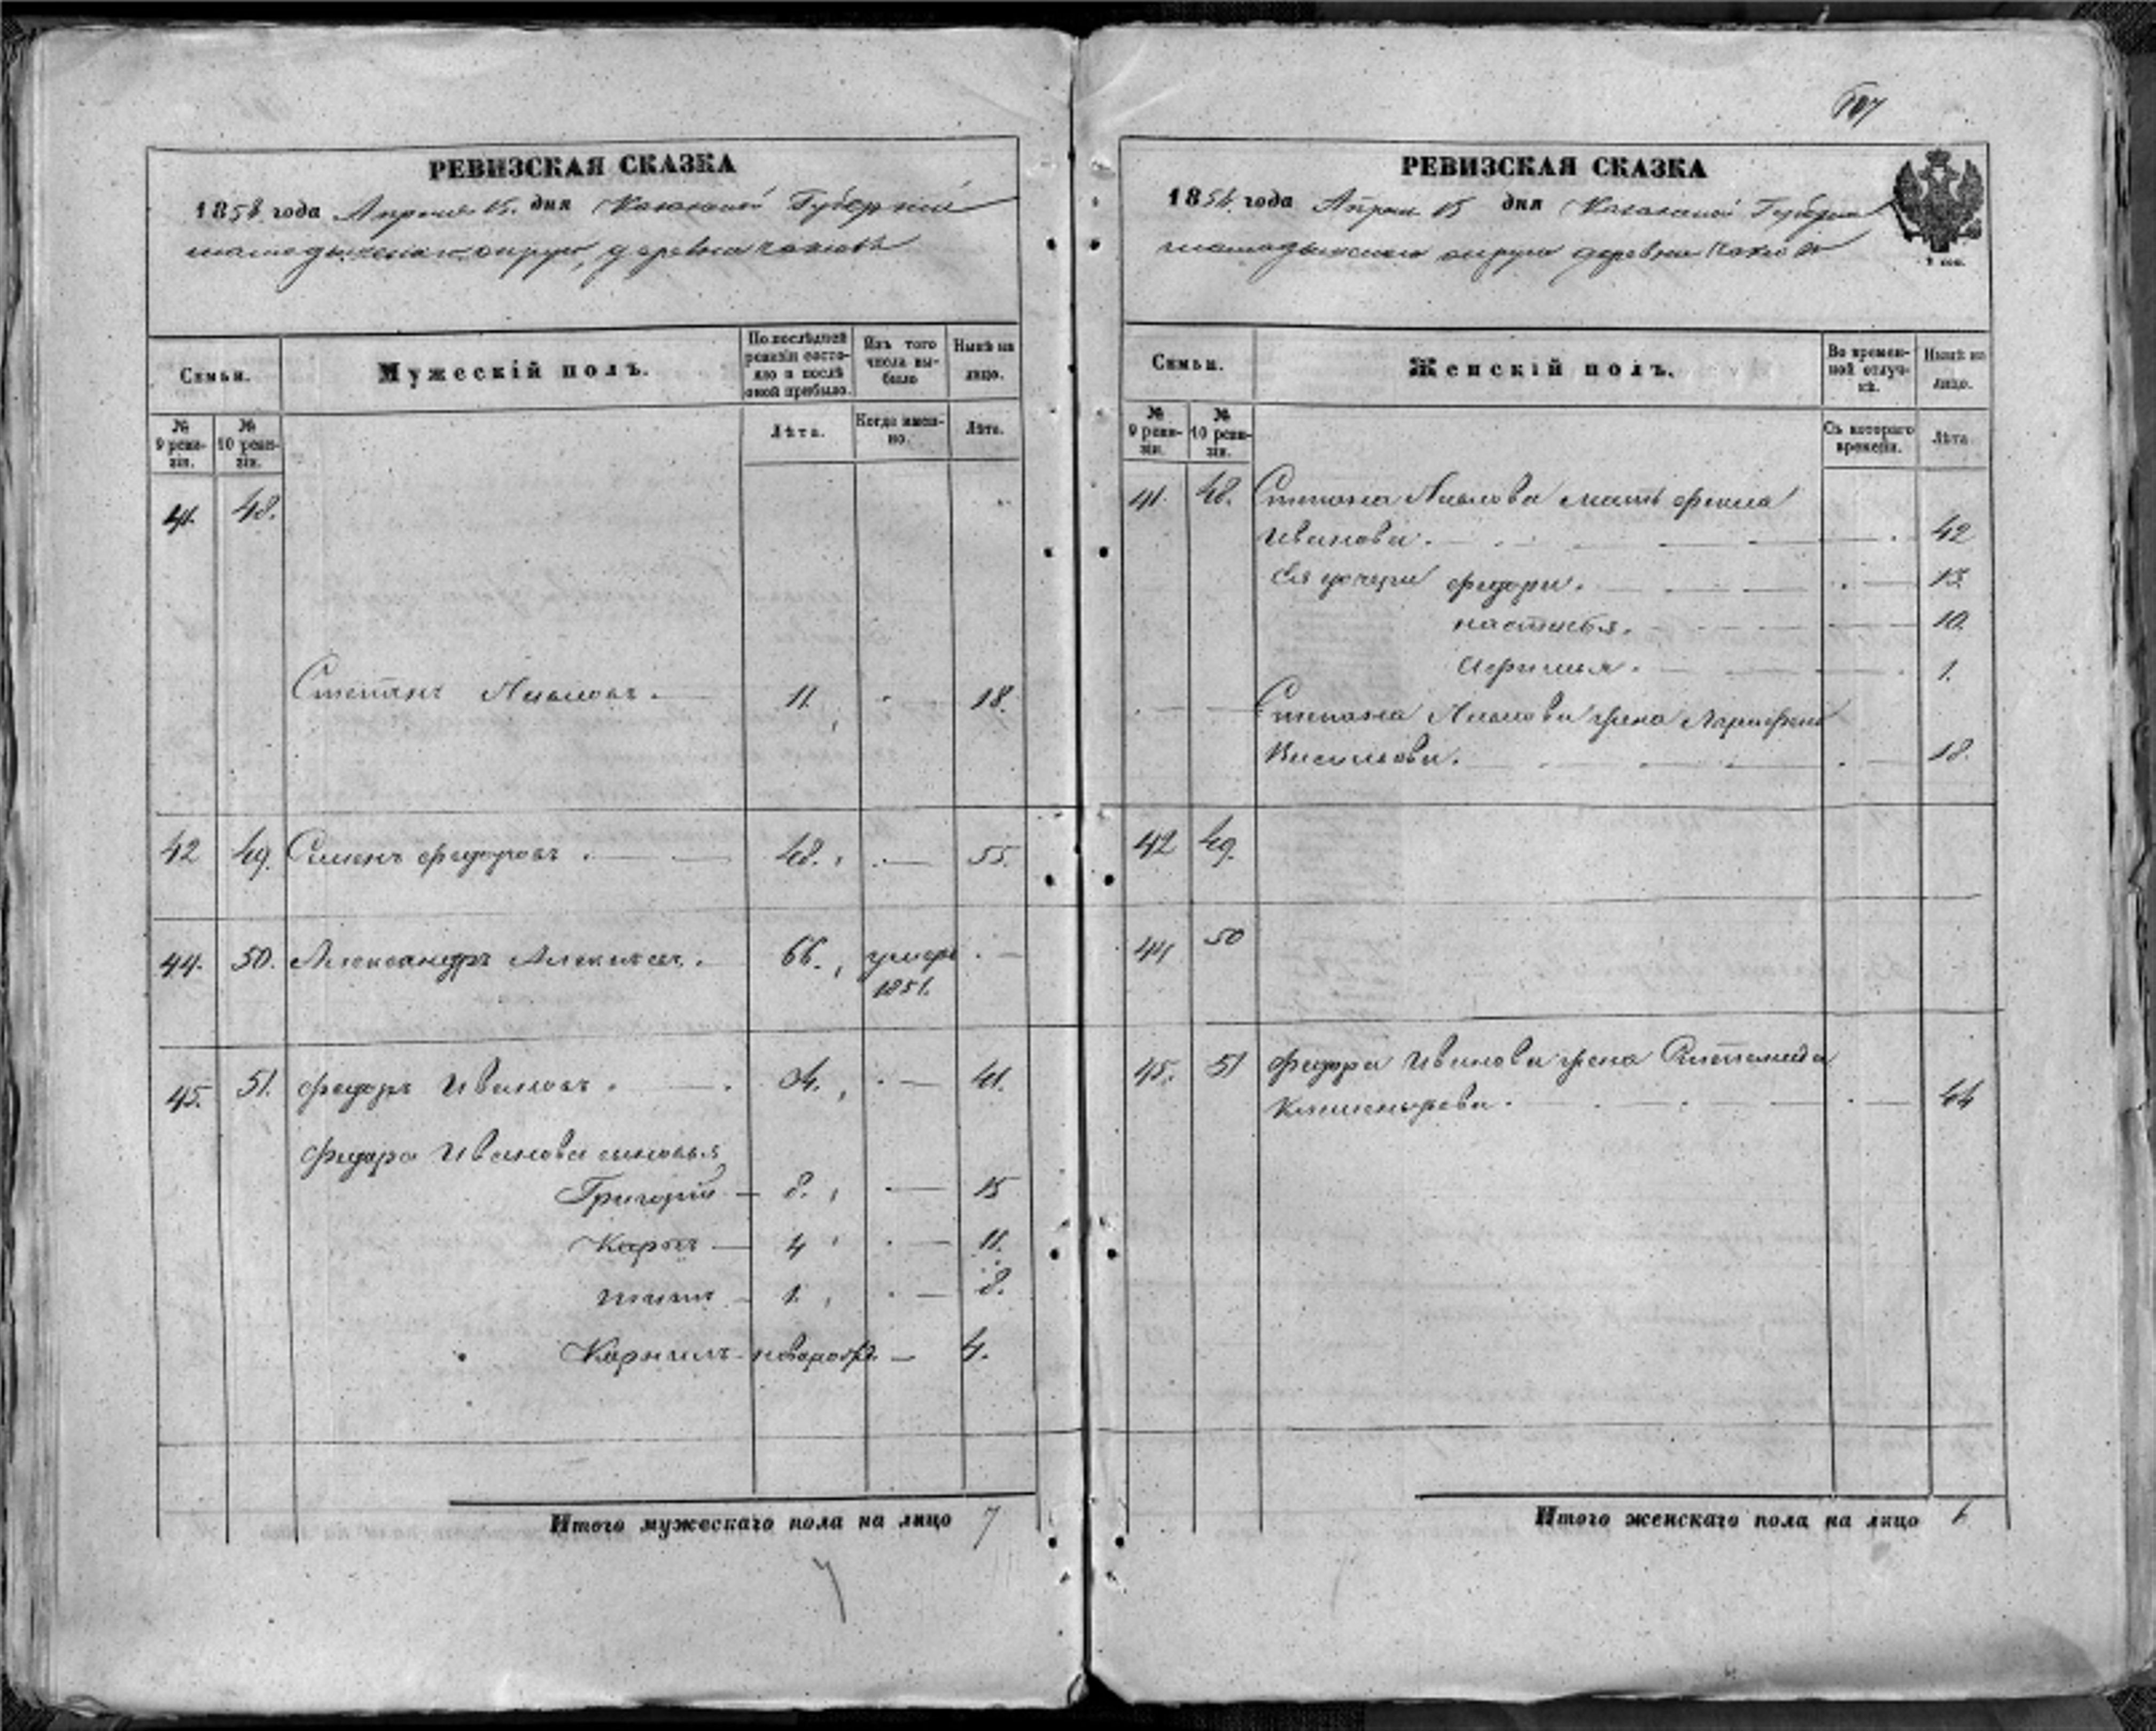 РЕВИЗСКАЯ СКАЗКА
1858 года Апреля 15. дня Казанской Губернии
округи, деревни
Семьи.
Мужескій полъ.
По послѣдней ревизіи состояло и послѣ оной прибыло.
Изъ того числа выбыло
Нынѣ на лицо.
№ 9 ревизіи.
№ 10 ревизіи.
Лѣта.
Когда именно.
Лѣта.
41. 48.
Степанъ 11. 18.
42 49. Семенъ Федоровъ. 48. 55.
44. 50. Александръ Алексѣевъ. 66. умеръ
1851.
45. 51. Федоръ Ивановъ. 34. 41.
Федора Иванова сыновья
Григорій 8. 15
Карпъ 4 11.
1. 8.
Корнилъ новорожд. 4.
Итого мужескаго пола на лицо 7
7
107
РЕВИЗСКАЯ СКАЗКА
1858 года Апреля 15 дня Казанской Губернии
округи деревни
Семьи.
Женскій полъ.
Во временной отлучкѣ.
Нынѣ на лицо.
№ 9 ревизіи.
№ 10 ревизіи.
Съ котораго времени.
Лѣта
41. 48. Степана мать
Иванова. 42
Ея дочери Федора. 13.
Настасья. 10.
1.
Степана жена
Васильева. 18.
42 49.
44 50
45. 51 Федора Иванова жена
44
Итого женскаго пола на лицо 6